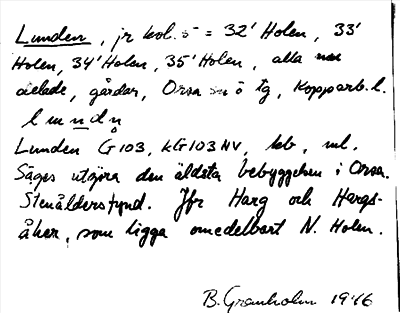 Lunden, jr kol. 5 = 32' Holen, 33'
Holen, 34' Holen, 35' Holen, alla
delade, gårdar, Orsa sn ö tg, Kopparb. l.
lundn
Lunden G 103, kG 103 NV, bb, ml.
Säges utgöra den äldsta bebyggelsen i Orsa.
Stenåldersfynd. Jfr Harg och Hargs-
åker, som ligga omedelbart N. Holen.
B. Granholm 1946